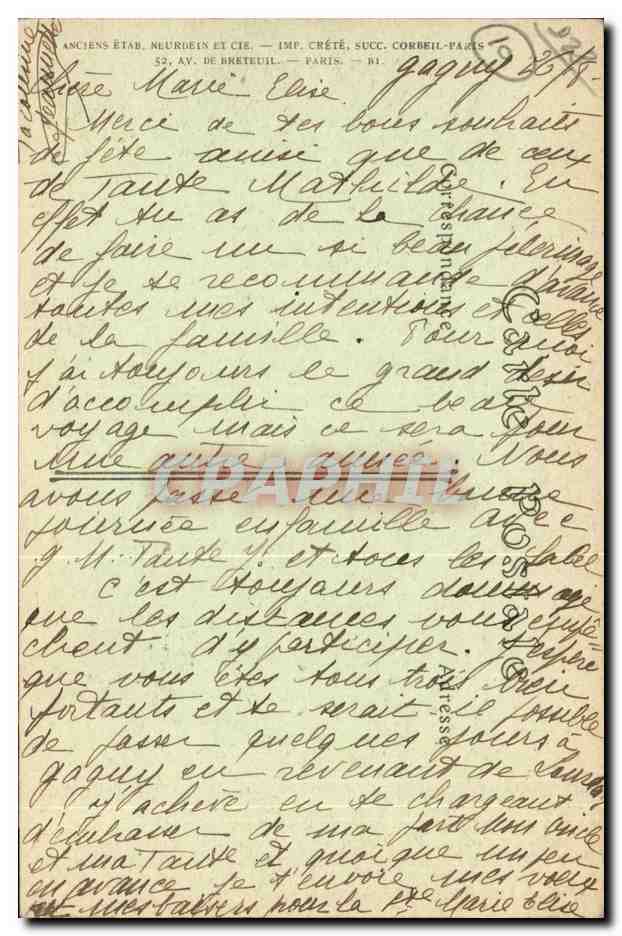 ANCIENS ÉTAB. NEURDEIN ET CIE. — IMP. CRÉTÉ, SUCC. CORBEIL-PARIS
52, AV. DE BRETEUIL. — PARIS. — BI.
Correspondance
Carte Postale
Adresse
CPARHIL
gagny
Chère Marie Elise.
Merci de tes bons souhaits
de fête ainsi que de ceux
de Tante Mathilde. En
effet tu as de la chance
de faire un si beau pèlerinage
et je te recommande d'avance
toutes mes intentions et celles
de la famille. Pour moi
j'ai toujours le grand désir
d'accomplir ce beau
voyage mais ce sera pour
une autre année. Nous
avons passé une bonne
journée en famille avec
g. M. Tante Y. et tous les
c'est toujours dommage
que les distances vous empê-
chent d'y participer. J'espère
que vous êtes tous trois bien
portants et te serait-il possible
de passer quelques jours à
gagny en revenant de Lourdes
J'achève en te chargeant
d'embrasser de ma part Mon oncle
et ma Tante et quoique un peu
en avance je t'envoie mes voeux
et mes baisers pour la Ste Marie Elise